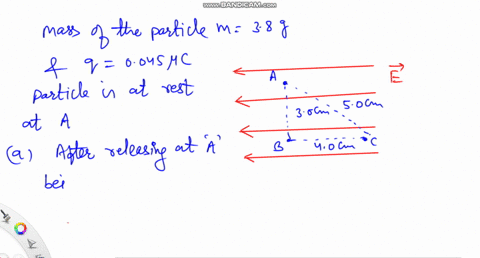 www.BANDICAM.com
mass of the particle m = 3.8 g
& q = 0.045 μC
Particle is at rest
at A
(a) After releasing at 'A'
bei
E
A
3.0cm
5.0cm
B
4.0cm
C